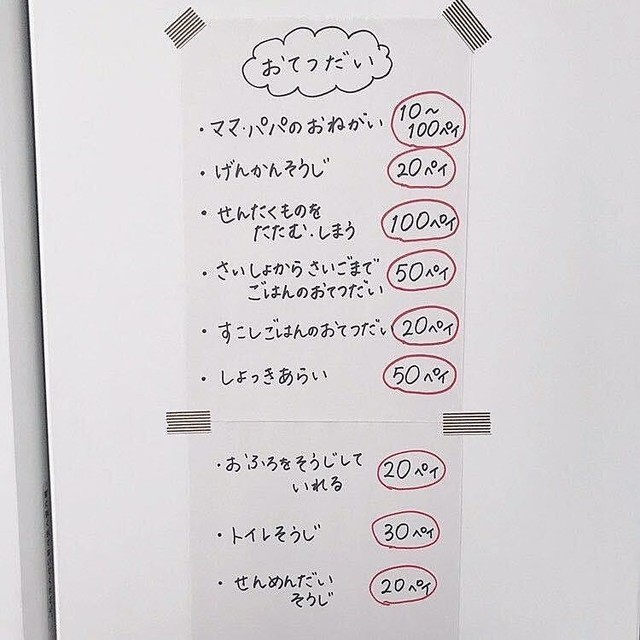 おてつだい
・ママ・パパのおねがい 10〜
100ペイ
・げんかんそうじ 20ペイ
・せんたくものを
たたむ・しまう 100ペイ
・さいしょからさいごまで
ごはんのおてつだい 50ペイ
・すこしごはんのおてつだい 20ペイ
・しょっきあらい 50ペイ
・おふろをそうじして
いれる 20ペイ
・トイレそうじ 30ペイ
・せんめんだい
そうじ 20ペイ